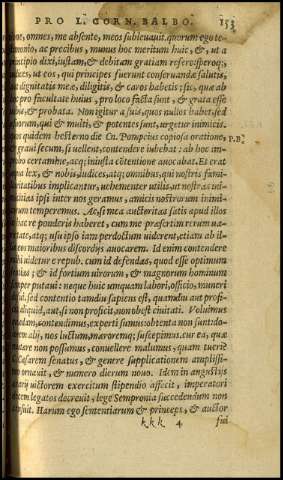 PRO L. CORN. BALBO. 153
nione, omnes, me absente, meos subleuauit. quorum ego te-
monio, ac precibus, munus hoc meritum huic, &, ut a
ntipio dixi, iustam, & debitam gratiam refero. sperocq;
udices, ut eos, qui principes fuerunt conseruandæ salutis,
ut dignitatis meæ, diligitis, & caros habetis: sic, quæ ab
oc pro facultate huius, pro loco facta sunt, & grata esse
bis, & probata. Non igitur a suis, quos nullos habet, sed
suorum, qui & multi, & potentes sunt, urgetur inimicis.
quos quidem hesterno die Cn. Pompeius copiosa oratione, P.B.
& graui secum, si uellent, contendere iubebat: ab hoc im-
pari certamine, atq; iniusta cōtentione auocabat. Et erat
qua lex, & nobis, iudices, atq; omnibus, qui nostris fami-
liaritatibus implicantur, uehementer utilis, ut nostras ini-
micitias ipsi inter nos geramus, amicis nostrorum inimi-
corum temperemus. Ac si mea auctoritas satis apud illos
hac re ponderis haberet, cum me præsertim rerum ua-
rietate, atq; usu ipso iam perdoctum uiderent, etiam ab il-
eos maioribus discordijs auocarem. Id enim contendere
ihi uidetur e repub. cum id defendas, quod esse optimum
sentias; & id fortium uirorum, & magnorum hominum
semper putaui: neque huic umquam labori, officio, muneri
fui. sed contentio tamdiu sapiens est, quamdiu aut profi-
aliquid, aut, si non proficit, non obest ciuitati. Voluimus
quædam, contendimus, experti sumus: obtenta non sunt. do-
alij, nos luctum, mæroremq; suscepimus. cur ea, quæ
mutare non possumus, conuellere malumus, quam tueri?
Cæsarem senatus, & genere supplicationum amplissi-
ornauit, & numero dierum nouo. Idem in angustijs
ærarij uictorem exercitum stipendio affecit, imperatori
decem legatos decreuit, lege Sempronia succedendum non
censuit. Harum ego sententiarum & princeps, & auctor
k k k 4 fui